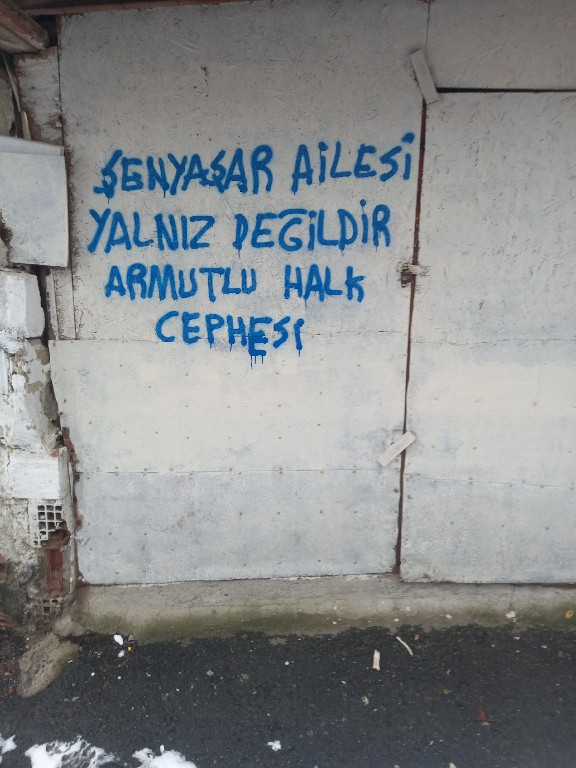 ŞENYAŞAR AİLESİ
YALNIZ DEĞİLDİR
ARMUTLU HALK
CEPHESİ